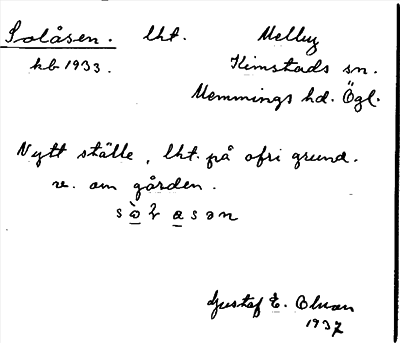 Solåsen. lht. Melby
hb 1933. Kimstads sn.
Memmings hd. Ögl.
Nytt ställe, lht. på ofri grund.
v. om gården.
Gustaf E. Olsson
1937